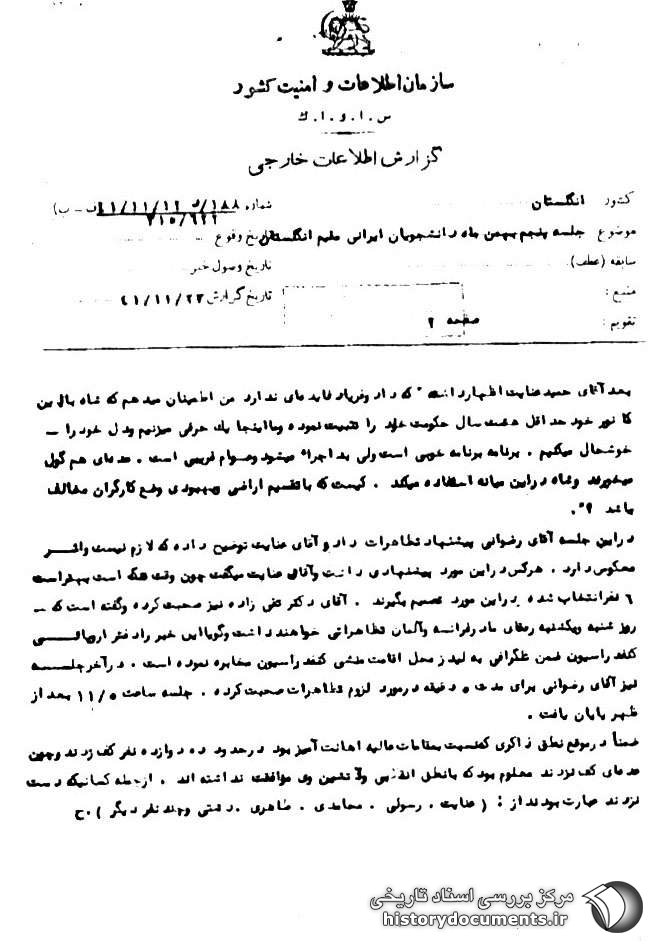 سازمان اطلاعات و امنیت کشور
س . ا . و . ا . ك
گزارش اطلاعات خارجی
کشور انگلستان
شماره
موضوع جلسه پنجم بهمن ماه دانشجویان ایرانی مقیم انگلستان
تاریخ وقوع
سابقه (عطف)
تاریخ وصول خبر
منبع :
تاریخ گزارش ۴۱/۱۱/۲۳
تقویم :
صفحه ۲
بعد آقای حمید عنایت اظهار داشت " که داد و فریاد فایده‌ای ندارد من اطمینان میدهم که شاه با این
کا نور خود حداقل هشت سال حکومت خود را تثبیت نموده و ما اینجا یك حرفی میزنیم و دل خود را -
خوشحال میکنیم . برنامه برنامه خوبی است ولی بد اجراء میشود و عوام فریبی است . عده‌ای هم گول
میخورند و شاه در این میانه استفاده میکند . کیست که با تقسیم اراضی و بهبودی وضع کارگران مخالف
باشد ؟ ".
در این جلسه آقای رضوانی پیشنهاد تظاهرات داد و آقای عنایت توضیح داده که لازم نیست و اثر
معکوس دارد . هرکس در این مورد پیشنهادی داشت و آقای عنایت میگفت چون وقت تنگ است بهتر است
۶ نفر انتخاب شده و در این مورد تصمیم بگیرند . آقای دکتر تقی زاده نیز صحبت کرده و گفته است که -
روز شنبه و یکشنبه رفقای ما در فرانسه و آلمان تظاهراتی خواهند داشت و گویا این خبر را دفتر اروپائی
کنفدراسیون ضمن تلگرافی به لیدز محل اقامت منشی کنفدراسیون مخابره نموده است . در آخر جلسه
نیز آقای رضوانی برای مدت ۵ دقیقه در مورد لزوم تظاهرات صحبت کرده . جلسه ساعت ۱۱/۵ بعد از
ظهر پایان یافت .
ضمناً در موقع نطق ذاکری که نسبت بمقامات عالیه اهانت آمیز بود در حدود ده دوازده نفر کف زدند و چون
عده‌ای کف نزدند معلوم بود که با نطق انقلابی و آتشین وی موافقت نداشته اند . از جمله کسانیکه دست
نزدند عبارت بودند از : ( عنایت . رسولی . محامدی . طاهری . دشتی و چند نفر دیگر ) ح۰
مرکز بررسی اسناد تاریخی
historydocuments.ir